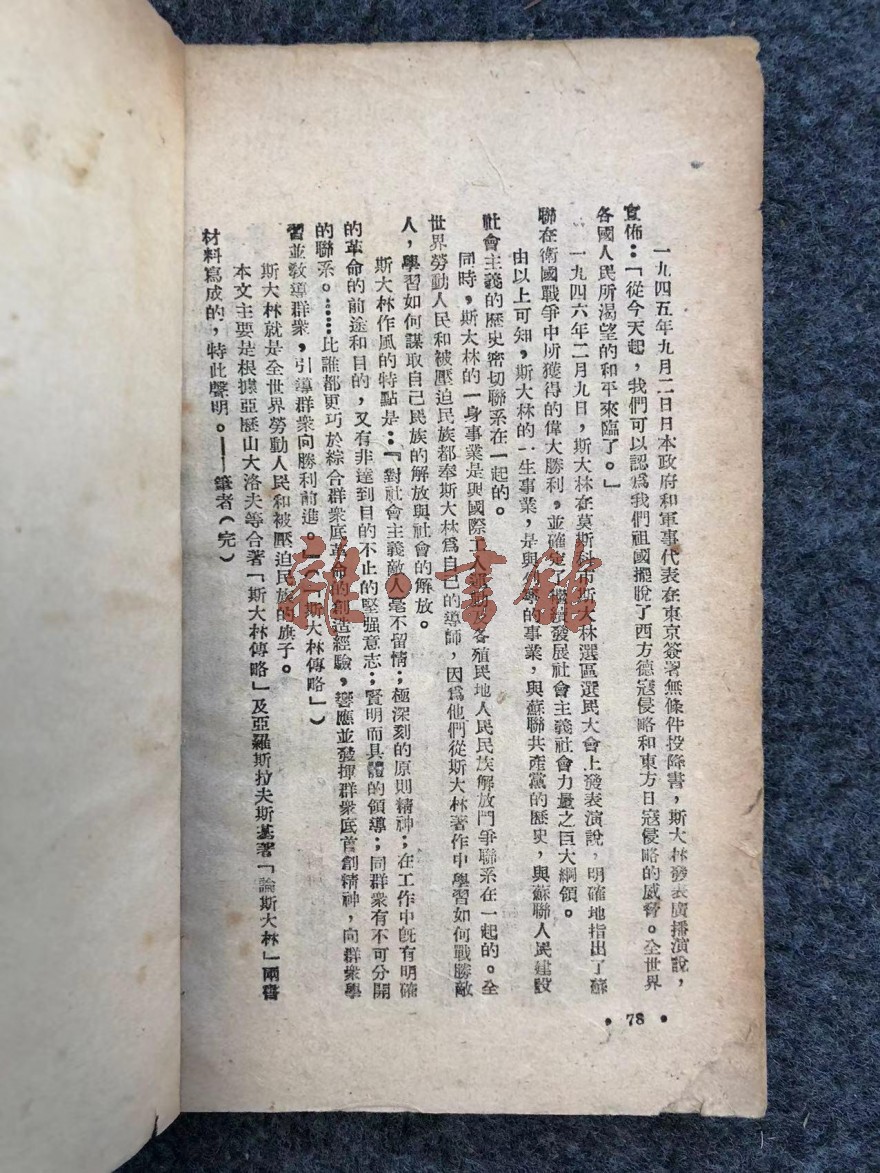 一九四五年九月二日日本政府和軍事代表在東京簽署無條件投降書，斯大林發表廣播演說，
宣佈：「從今天起，我們可以認爲我們祖國擺脫了西方德寇侵略和東方日寇侵略的威脅。全世界
各國人民所渴望的和平來臨了。」
一九四六年二月九日，斯大林在莫斯科市斯大林選區選民大會上發表演說，明確地指出了蘇
聯在衛國戰爭中所獲得的偉大勝利，並確定了繼續發展社會主義社會力量之巨大綱領。
由以上可知，斯大林的一生事業，是與的事業，與蘇聯共產黨的歷史，與蘇聯人民建設
社會主義的歷史密切聯系在一起的。
同時，斯大林的一身事業是與國際工人運動及各殖民地人民民族解放鬥爭聯系在一起的。全
世界勞動人民和被壓迫民族都奉斯大林爲自己的導師，因爲他們從斯大林著作中學習如何戰勝敵
人，學習如何謀取自己民族的解放與社會的解放。
斯大林作風的特點是：『對社會主義敵人毫不留情；極深刻的原則精神；在工作中旣有明確
的革命的前途和目的，又有非達到目的不止的堅强意志；賢明而具體的領導；同群衆有不可分開
的聯系。……比誰都更巧於綜合群衆底革命的創造經驗，響應並發揮群衆底首創精神，向群衆學
習並敎導群衆，引導群衆向勝利前進。』（「斯大林傳略」）
斯大林就是全世界勞動人民和被壓迫民族的旗子。
本文主要是根據亞歷山大洛夫等合著「斯大林傳略」及亞羅斯拉夫斯基著「論斯大林」兩書
材料寫成的，特此聲明。——筆者（完）
• 78 •
雜·書館